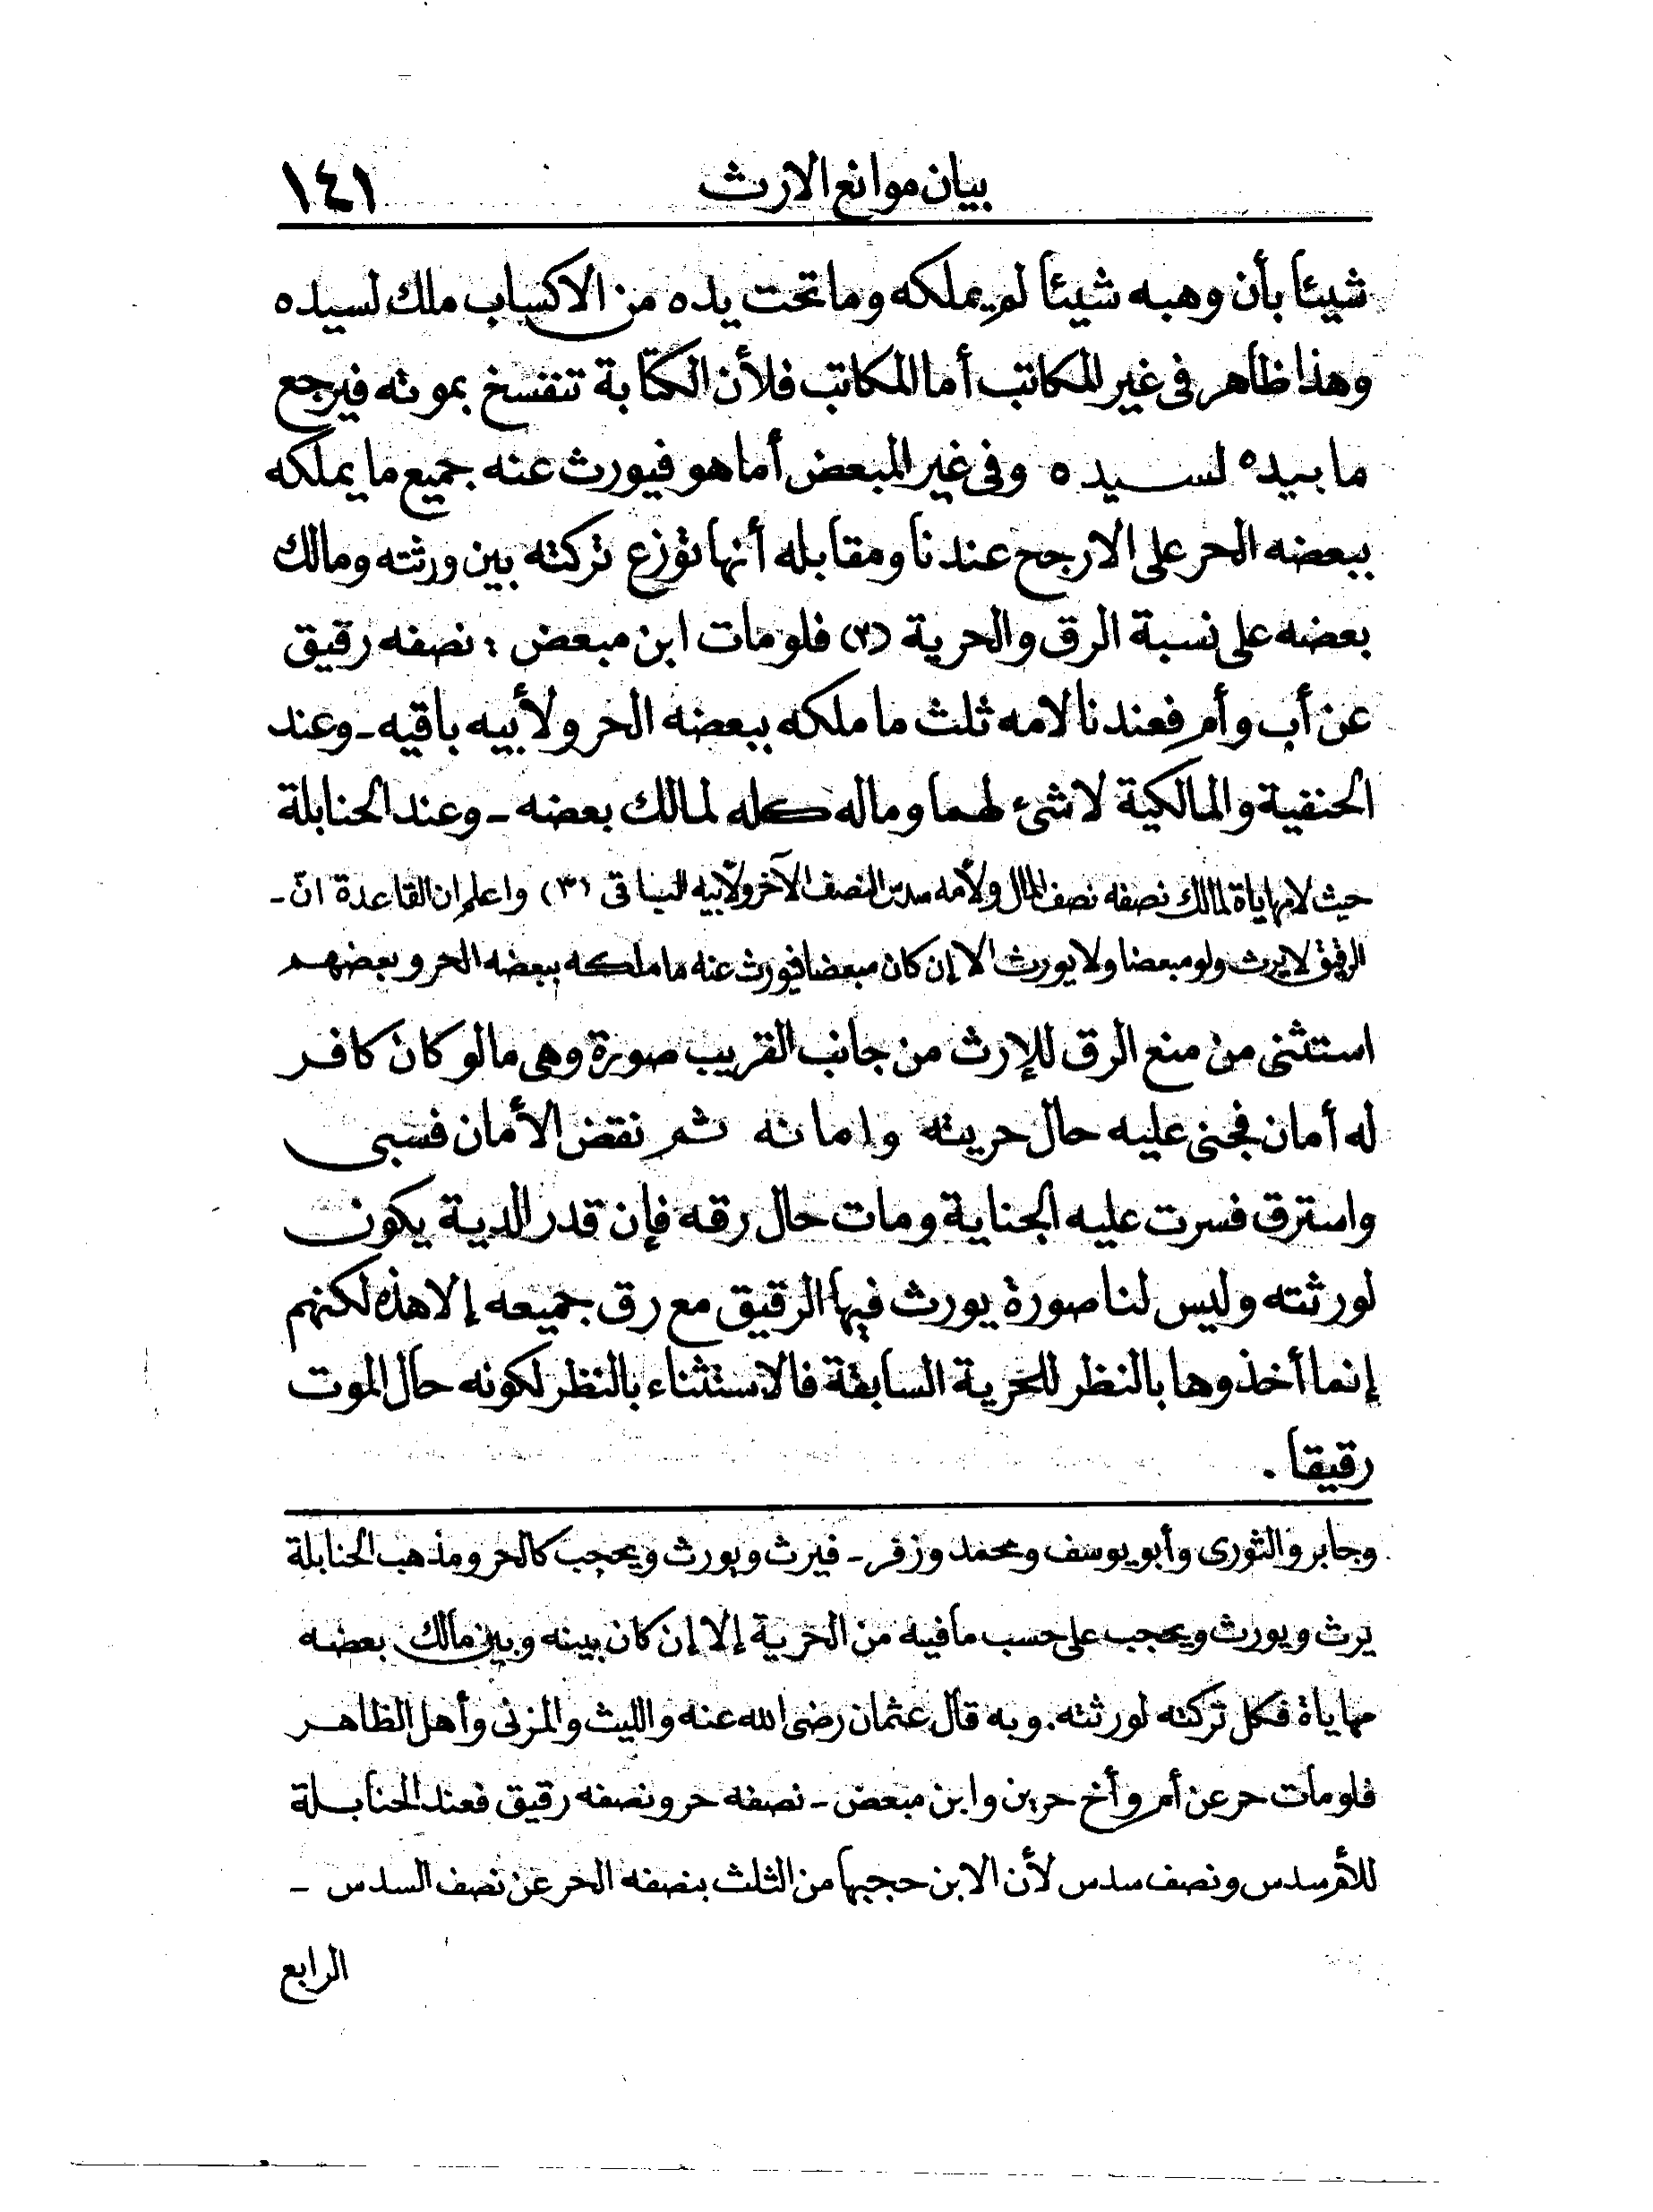 بيان موانع الارث ١٤١
شيئا بأن وهبه شيئا لم يملكه وما تحت يده من الاكساب ملك لسيده
وهذا ظاهر فى غير المكاتب أما المكاتب فلأن الكتابة تنفسخ بموته فيرجع
ما بيده لسيده وفى غير المبعض أما هو فيورث عنه جميع ما يملكه
ببعضه الحر على الارجح عندنا ومقابله أنها توزع تركته بين ورثته ومالك
بعضه على نسبة الرق والحرية (٢) فلو مات ابن مبعض : نصفه رقيق
عن أب وأم فعندنا لامه ثلث ما ملكه ببعضه الحر ولأبيه باقيه - وعند
الحنفية والمالكية لا شئ لهما وماله كله لمالك بعضه - وعند الحنابلة
حيث لا مهاياة لمالك نصفه نصف المال ولأمه سدس النصف الآخر ولأبيه الباقى (٣) واعلم ان القاعدة انّ -
الرقيق لا يرث ولو مبعضا ولا يورث الا إن كان مبعضا فيورث عنه ما ملكه ببعضه الحر وبعضهم
استثنى من منع الرق للإرث من جانب القريب صورة وهى مالو كان كافر
له أمان فجنى عليه حال حريته وامانه ثم نقض الأمان فسبى
واسترق فسرت عليه الجناية ومات حال رقه فإن قدر الدية يكون
لورثته وليس لنا صورة يورث فيها الرقيق مع رق جميعه إلا هذه لكنهم
إنما أخذوها بالنظر للحرية السابقة فالاستثناء بالنظر لكونه حال الموت
رقيقا .
وجابر والثورى وأبو يوسف ومحمد وزفر - فيرث ويورث ويحجب كالحر ومذهب الحنابلة
يرث ويورث ويحجب على حسب ما فيه من الحرية إلا إن كان بينه وبين مالك بعضه
مهاياة فكل تركته لورثته. وبه قال عثمان رضى الله عنه والليث والمزنى وأهل الظاهر
فلو مات حر عن أم وأخ حرين وابن مبعض - نصفه حر ونصفه رقيق فعند الحنابلة
للأم سدس ونصف سدس لأن الابن حجبها من الثلث بنصفه الحر عن نصف السدس -
الرابع